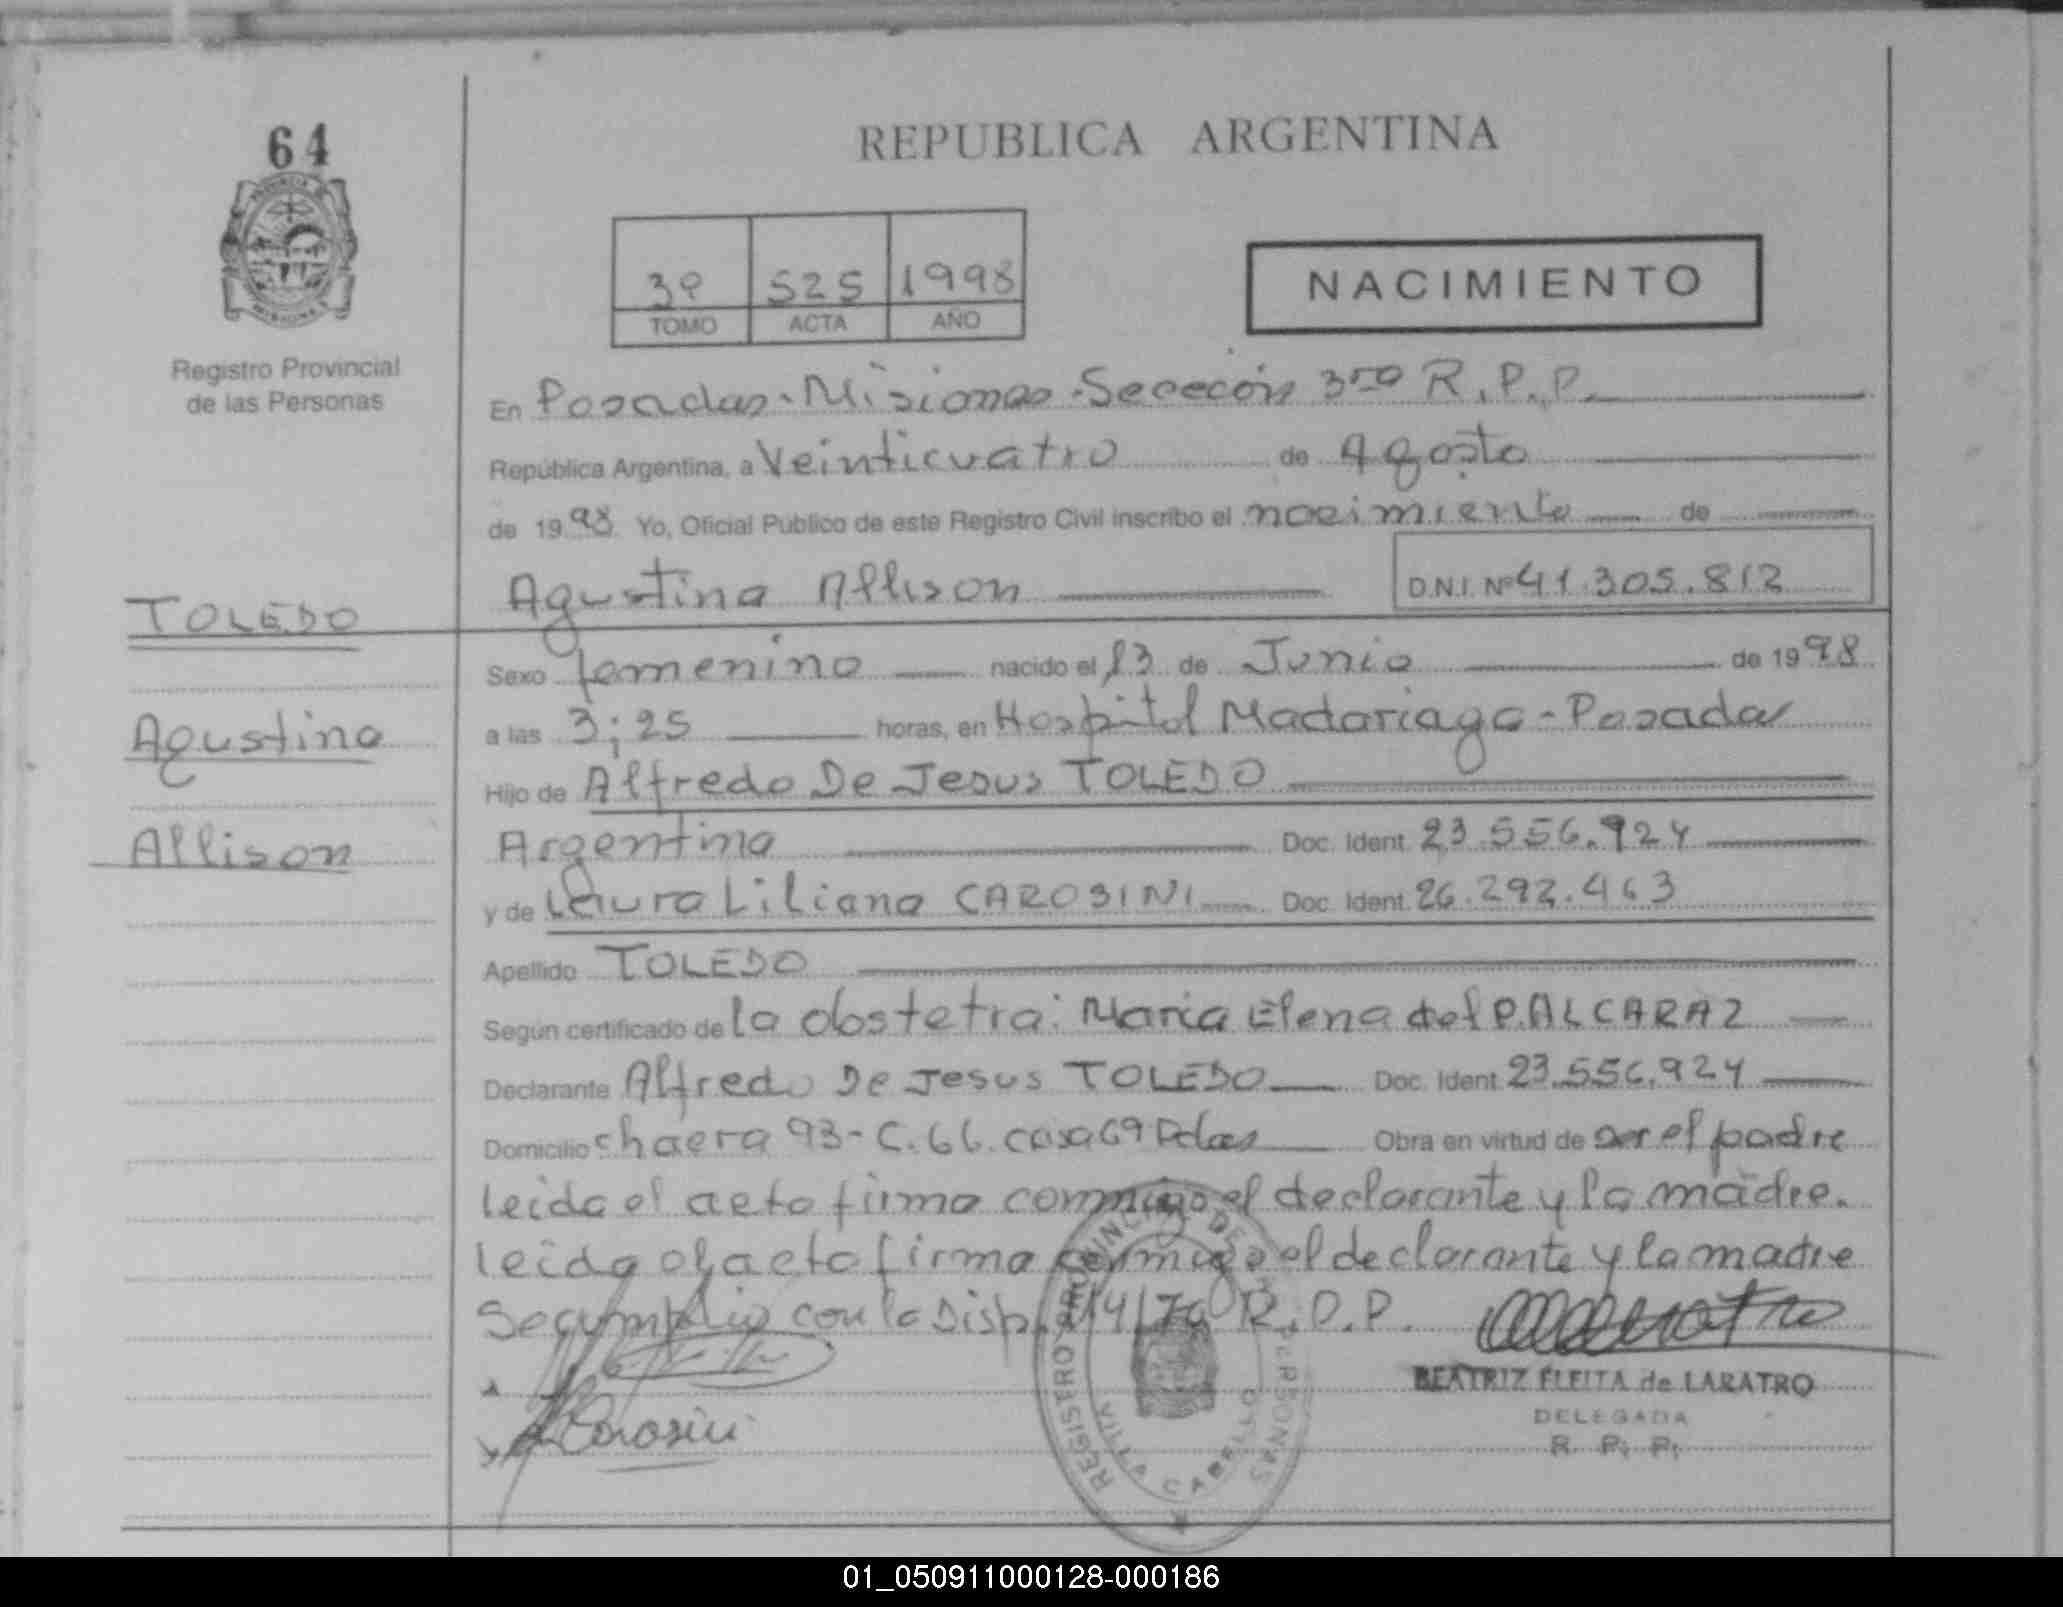 64
REPUBLICA ARGENTINA
3º 525 1998
TOMO ACTA AÑO
NACIMIENTO
Registro Provincial
de las Personas
En Posadas - Misiones - Sección 3ra R.P.P.
República Argentina, a Veinticuatro de Agosto
de 1998 Yo, Oficial Público de este Registro Civil inscribo el nacimiento de
Agustina Allison D.N.I. Nº 41.305.812
TOLEDO
Agustina
Allison
Sexo femenino nacido el 13 de Junio de 1998
a las 3;25 horas, en Hospital Madariaga - Posadas
Hijo de Alfredo De Jesus TOLEDO
Argentina Doc. Ident. 23.556.924
y de Laura Liliana CAROSINI Doc. Ident. 26.292.463
Apellido TOLEDO
Según certificado de la obstetra: Maria Elena del P. ALCARAZ
Declarante Alfredo De Jesus TOLEDO Doc. Ident. 23.556.924
Domicilio chacra 93 - C. 66. casa 69 Pdas Obra en virtud de ser el padre
leida el acta firma conmigo el declarante y la madre.
leida el acta firma conmigo el declarante y la madre
Se cumplio con la Disp. 14/70 R.P.P.
Carosini
REGISTRO PROVINCIAL DE LAS PERSONAS
VILLA CABELLO
BEATRIZ FLEITA de LARATRO
DELEGADA
R. P. P.
01_050911000128-000186